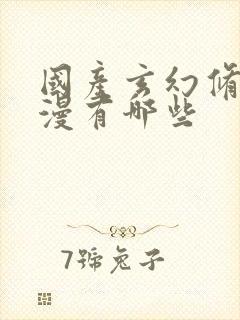 國產玄幻脩
漫有哪些
7號兔子